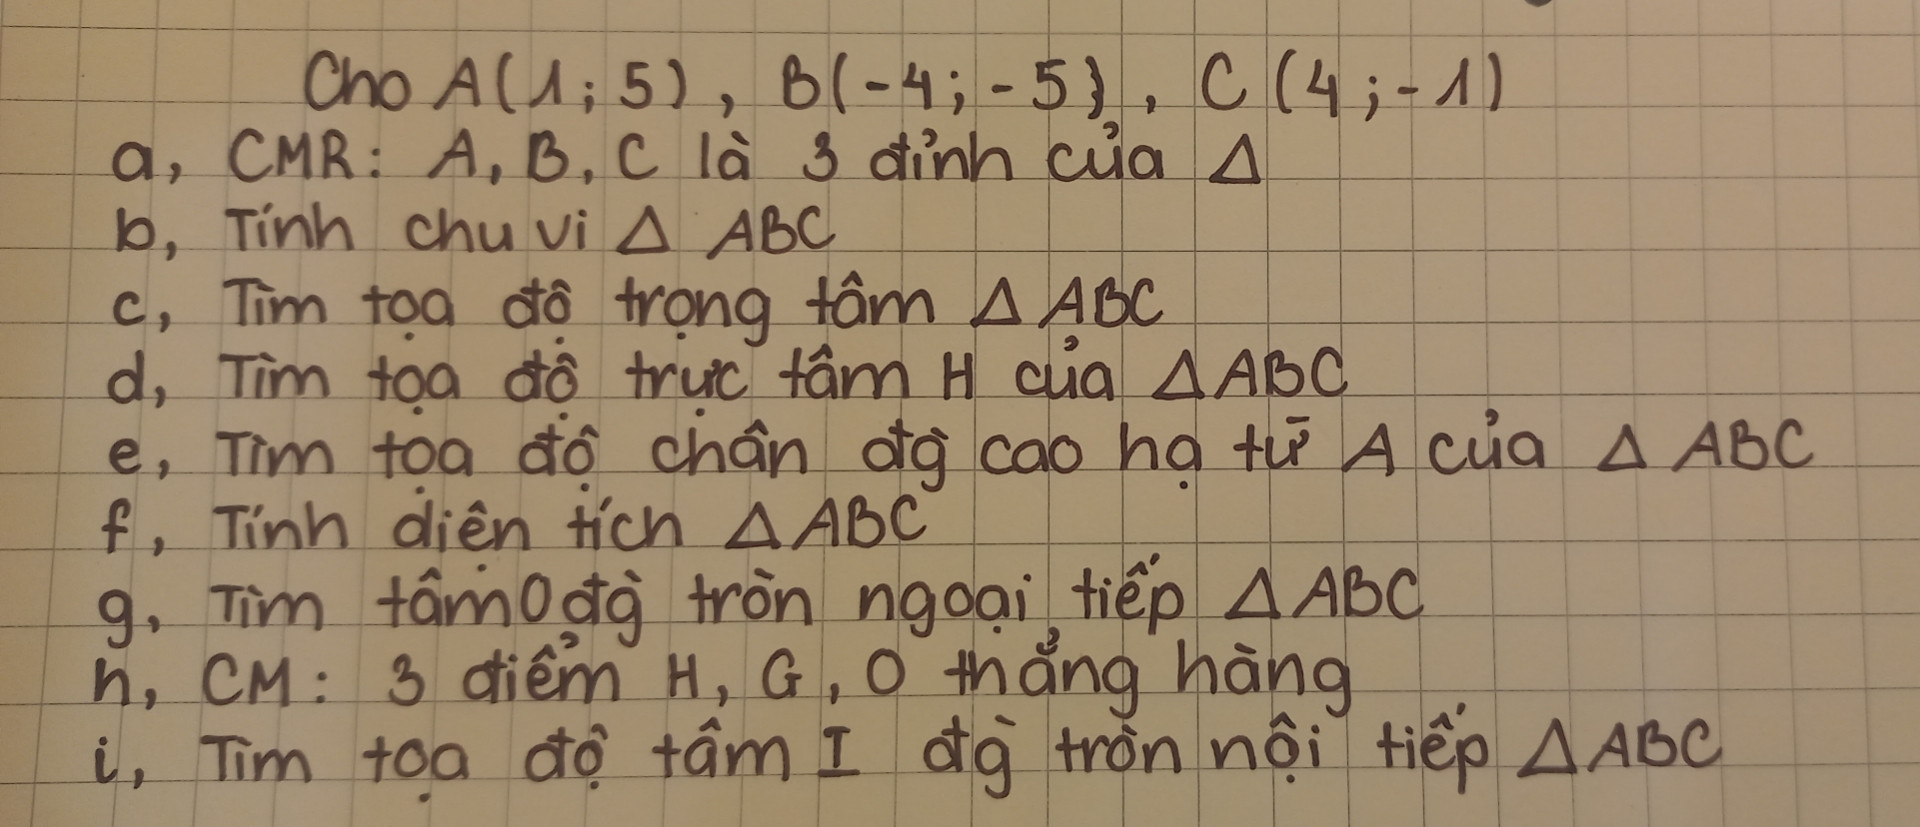 Cho A(1; 5), B(-4; -5), C (4; -1)
a, CMR: A, B, C là 3 đỉnh của Δ
b, Tính chu vi Δ ABC
c, Tìm tọa độ trọng tâm Δ ABC
d, Tìm tọa độ trực tâm H của Δ ABC
e, Tìm tọa độ chân đg̀ cao hạ từ A của Δ ABC
f, Tính diện tích Δ ABC
g, Tìm tâm O đg̀ tròn ngoại tiếp Δ ABC
h, CM: 3 điểm H, G, O thẳng hàng
i, Tìm tọa độ tâm I đg̀ tròn nội tiếp Δ ABC